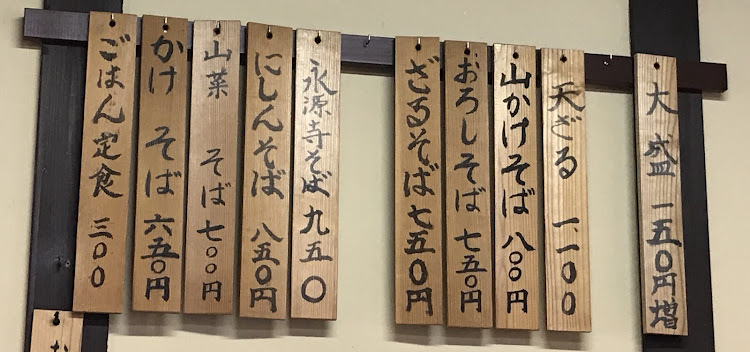 大盛 一五〇円増
天ざる 一一〇〇
山かけそば 八〇〇円
おろしそば 七五〇円
ざるそば 七五〇円
永源寺そば 九五〇
にしんそば 八五〇円
山菜そば 七〇〇円
かけそば 六五〇円
ごはん定食 三〇〇